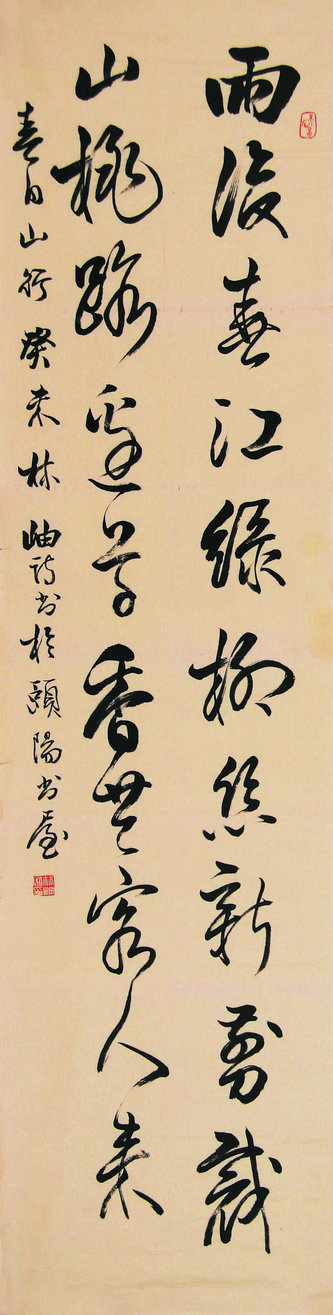 雨後春江綠柳絲新剪裁
山桃路邊草香客人来
春日山行 癸未 林岫詩书於頤陽书屋